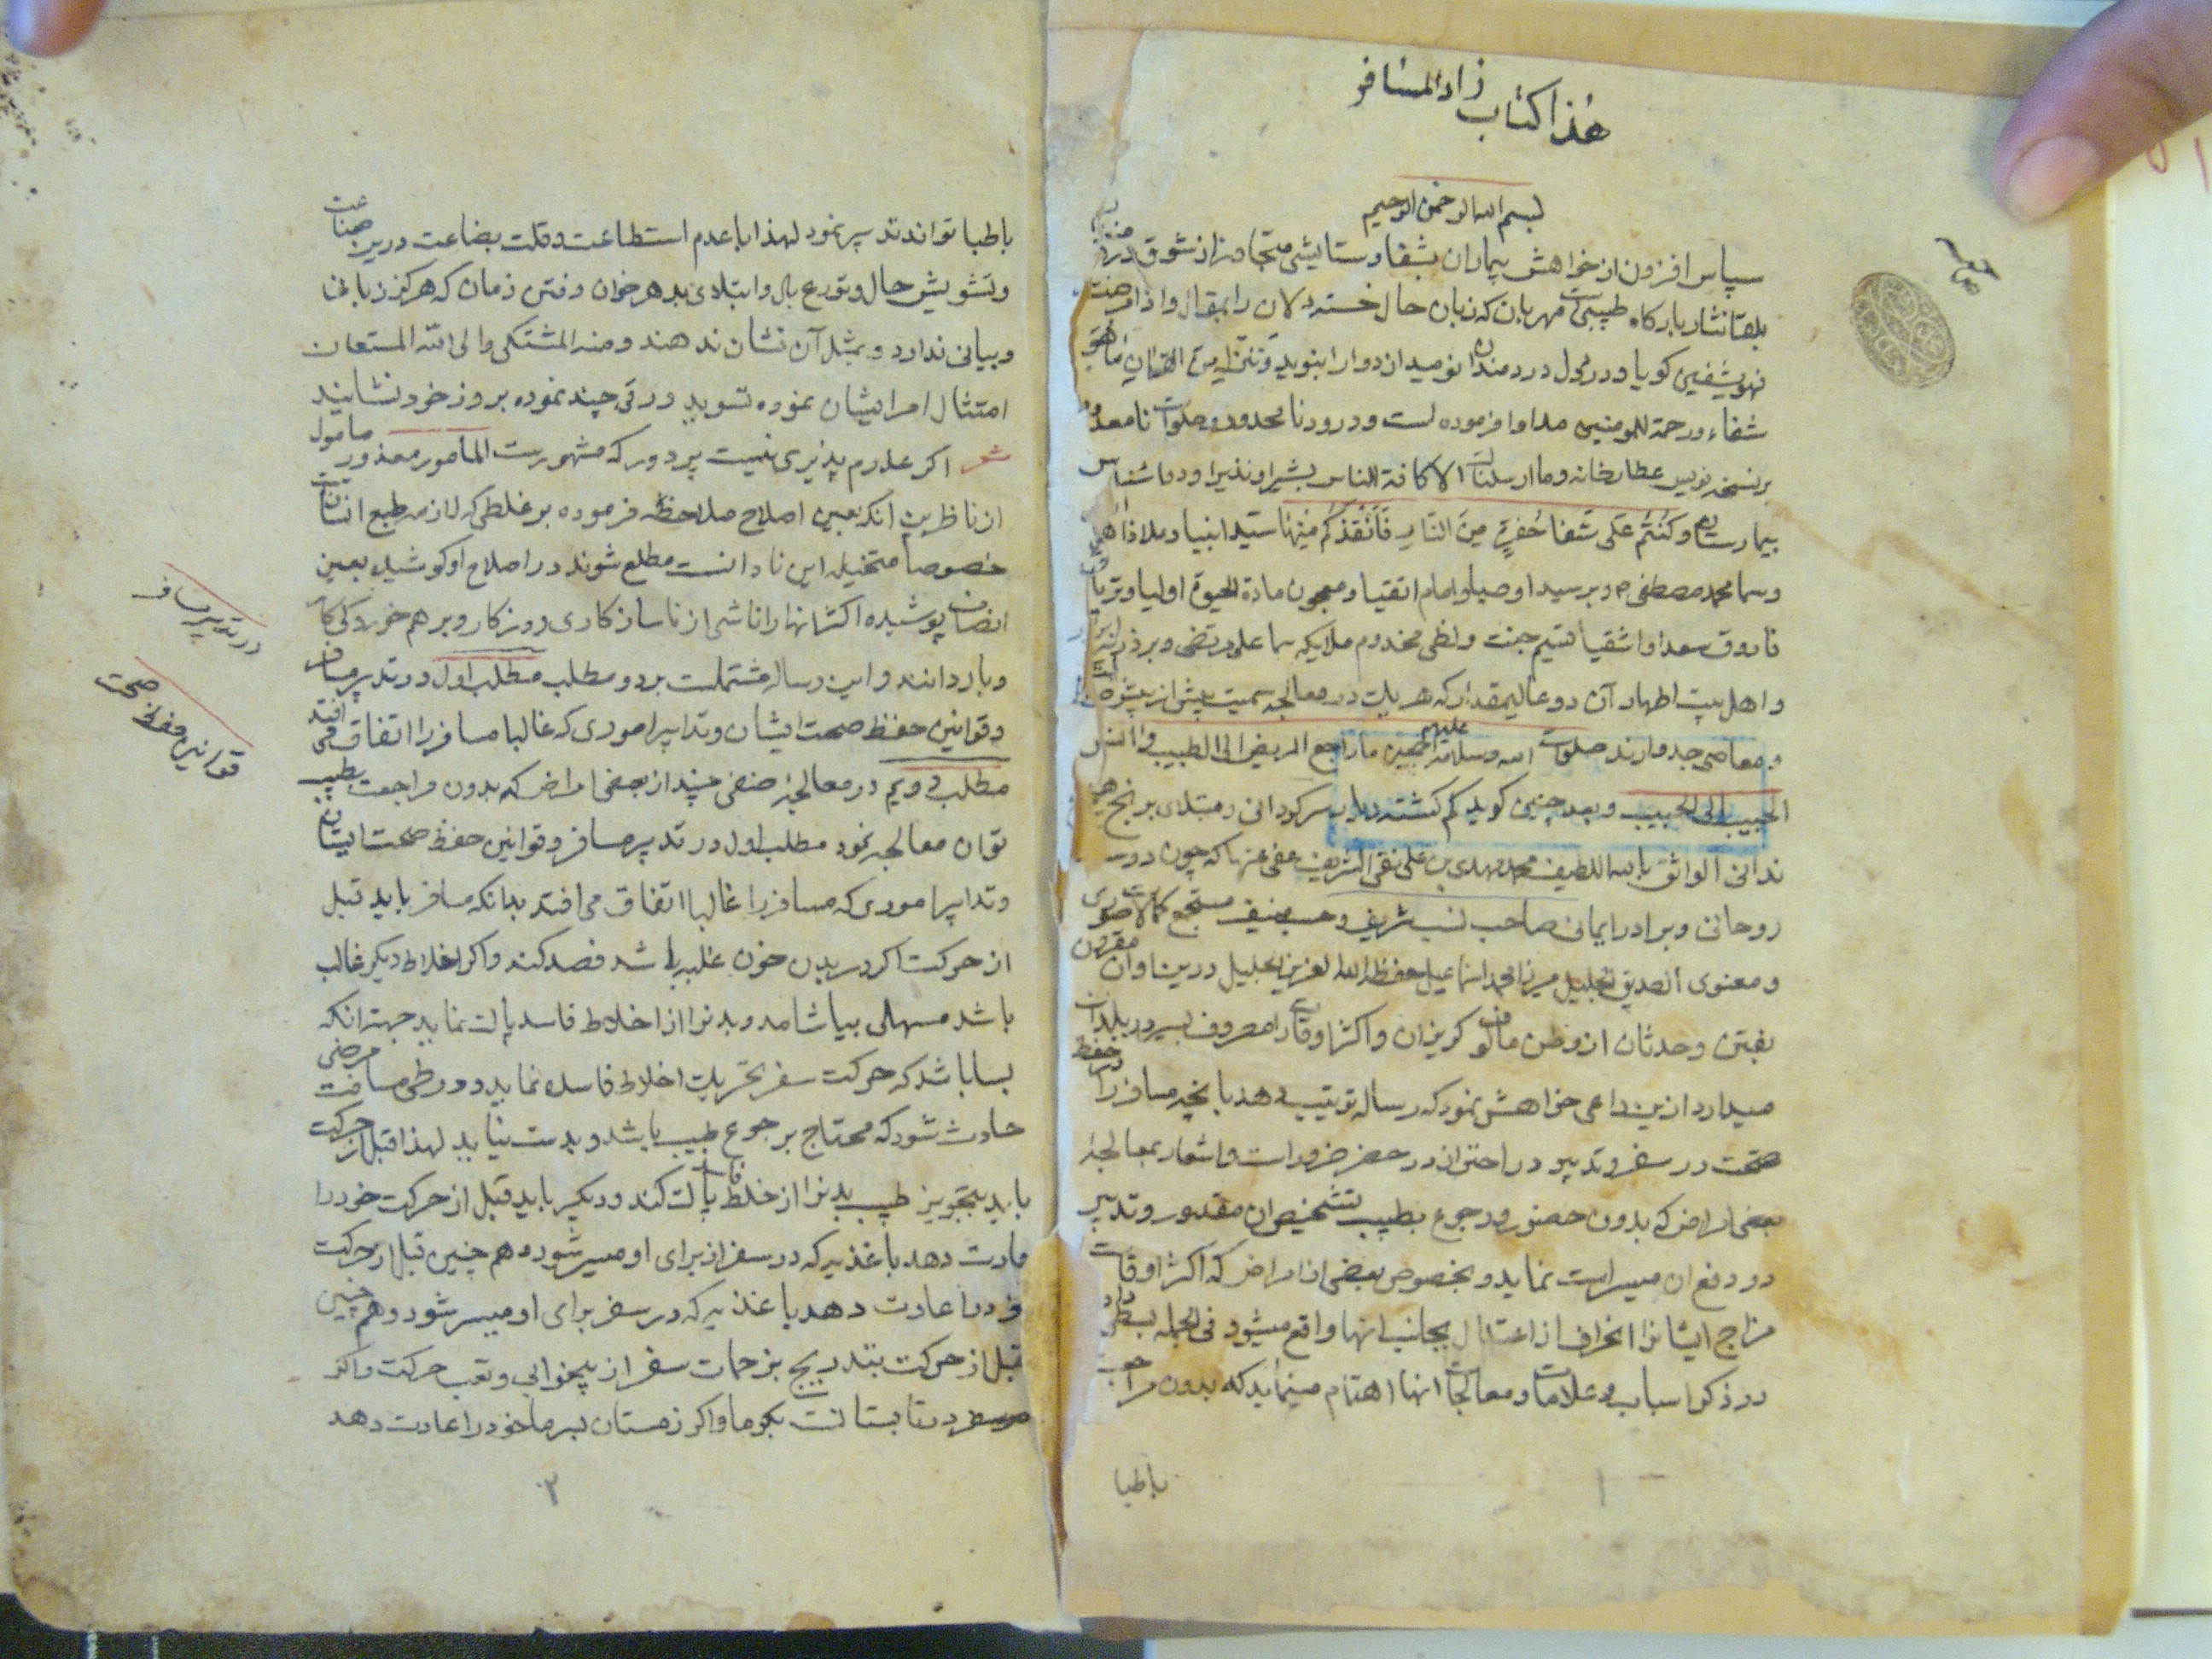 هذا کتاب زاد المسافر
بسم الله الرحمن الرحیم
سپاس افزون از خواهش بیماران بشفا و ستایشی متجاوز از شوق درد
نثار بارکاه طبیبی است مهربان که زبان حال خسته دلان را بمقال واذا مرضت
فهو یشفین کویا و درد دل دردمندان نومیدان دوا را بنوید وننزل من القران ما هو
شفاء ورحمة للمومنین مداوا فرموده است و درود نامحدود و صلوات نامعدود
بر نسخه نویس عطارخانه وما ارسلناک الا کافة الناس بشیرا ونذیرا و دوا شناس
بیمارستان وکنتم علی شفا حفرة من النار فانقذکم منها سید انبیا و ملاذ اهل
وسما محمد مصطفی ص و بر سید اوصیا و امام اتقیا و معجون مادة الحیوة اولیا و تریاق
فاروق سعدا و اشقیا قسیم جنت و لظی مخدوم ملایکه سما علی مرتضی و بر
و اهل بیت اطهار آن دو عالیمقدار که هر یک در معالجه سمیت بیش از بیش
معاصی جدوارند صلوات الله وسلامه علیهم اجمعین ما راجع المریض الی الطبیب و
الحبیب الی الحبیب و بعد چنین کوید کم کشته دیار سرکردانی و مبتلای برنج هیچ
ندانی الواثق بالله اللطیف محمد مهدی بن علی نقی الشریف عفی عنهما که چون دوست
روحانی و برادر ایمانی صاحب نسب شریف و حسب منیف مستجمع کمالات صوری
و معنوی الصدیق الجلیل میرزا محمد اسماعیل حفظه الله العزیز الجلیل درین اوان مقرون
بفتن و حدثان از وطن مالوف کریزان و اکثر اوقات را مصروف بسیر در بلدان
میدارد ازین داعی خواهش نمود که رساله ترتیب دهد بانچه مسافر را در حفظ
صحت در سفر و تدبیر و احتراز در حضر ضرور است و اشعار بمعالجهٔ
بعضی امراض که بدون حضور و رجوع بطبیب تشخیص ان مقدور و تدبیر
در دفع ان میسر است نماید و بخصوص بعضی از امراض که اکثر اوقات
مزاج ایشانرا انحراف از اعتدال بجانب انها واقع میشود فی الجمله بسطی داد
در ذکر اسباب و علامات و معالجات انها اهتمام مینماید که بدون مراجعت
باطبا
۱
باطبا تواند تدبیر نمود لهذا با عدم استطاعت و قلت بضاعت درین صناعت
و تشویش حال و توزع بال و ابتلای بدهر خوان و فتن زمان که هرکز زبانی
و بیانی ندارد و بمثل آن نشان ندهند ومنه المشتکی والی الله المستعان
امتثال امر ایشان نموده تسوید ورقی چند نموده بروز خود نشانید
شعر اکر عذرم پذیری نیست پر دور که مشهورست المامور معذور مامول
از ناظرین انکه بعین اصلاح ملاحظه فرموده بر غلطی که لازمه طبع انسان است
خصوصا متخیله این نادانست مطلع شوند در اصلاح او کوشید بعین
انصاف پوشیده اکثر انها را ناشی از ناسازکاری روزکار و بر هم خوردکی کار
و بار دانند و این رساله مشتملست بر دو مطلب مطلب اول در تدبیر مسافر
و قوانین حفظ صحت ایشان و تدابیر اموری که غالبا مسافر را اتفاق می افتد
مطلب دویم در معالجهٔ صنفی چند از بعضی امراض که بدون مراجعت بطبیب
توان معالجه نمود مطلب اول در تدبیر مسافر و قوانین حفظ صحت ایشان
و تدابیر اموری که مسافر را غالبا اتفاق می افتد بدانکه مسافر باید قبل
از حرکت اکر در بدن خون غلبه باشد فصد کند و اکر اخلاط دیکر غالب
باشد مسهلی بیاشامد و بدنرا از اخلاط فاسد پاک نماید جهت انکه
بسا باشد که حرکت سفر تحریک اخلاط فاسده نماید و در طی مسافت مرضی
حادث شود که محتاج برجوع طبیب باشد و بدست نیاید لهذا قبل از حرکت
باید بتجویز طبیب بدنرا از خلط فاسد پاک کند و دیکر باید قبل از حرکت خود را
عادت دهد باغذیه که در سفر از برای او میسر شود و هم چنین قبل از حرکت
خود را عادت دهد باغذیه که در سفر برای او میسر شود و هم چنین
قبل از حرکت بتدریج بزحمات سفر از بیخوابی و تعب حرکت و اکر
سفر در تابستانست بکرما و اکر زمستان بسرما خود را عادت دهد
۲
در تدبیر مسافر
قوانین حفظ صحت